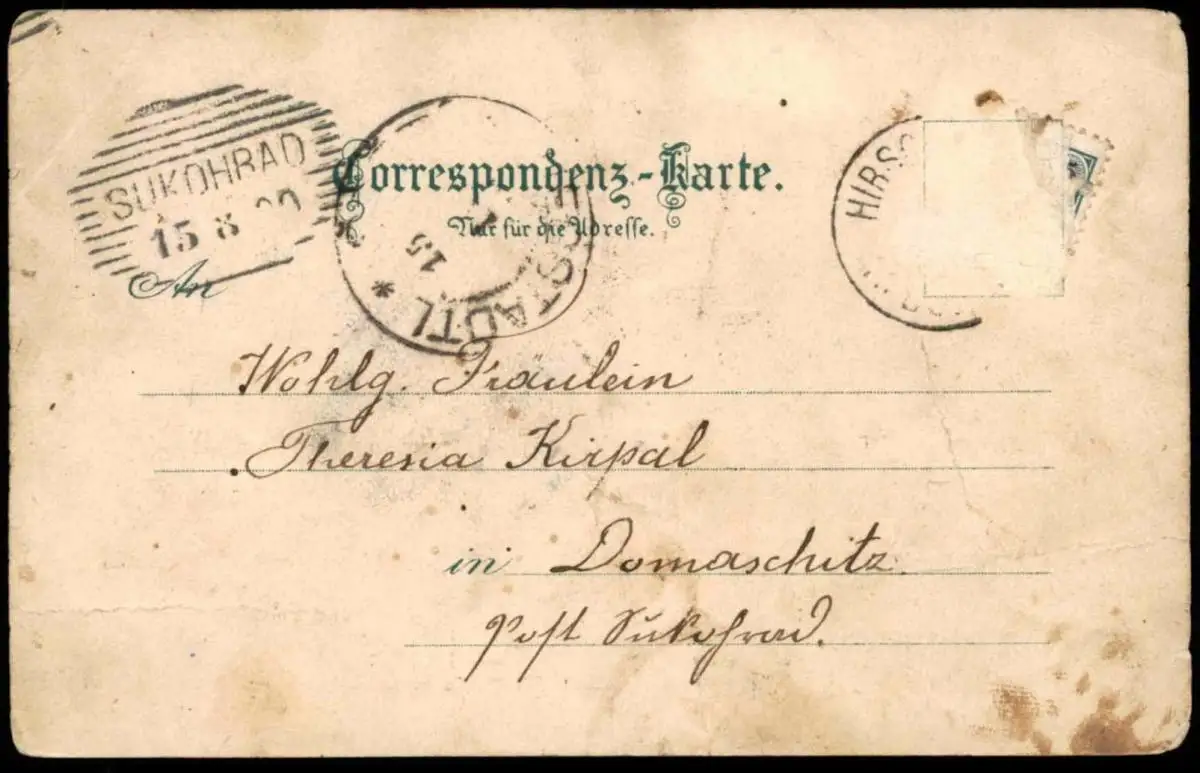 SUKOHRAD
15 8 00
Correspondenz-Karte.
Nur für die Adresse.
15
STADTL *
HIRSC
An
Wohlg. Fräulein
Theresia Kirpal
in Domaschitz
Post Sukohrad.